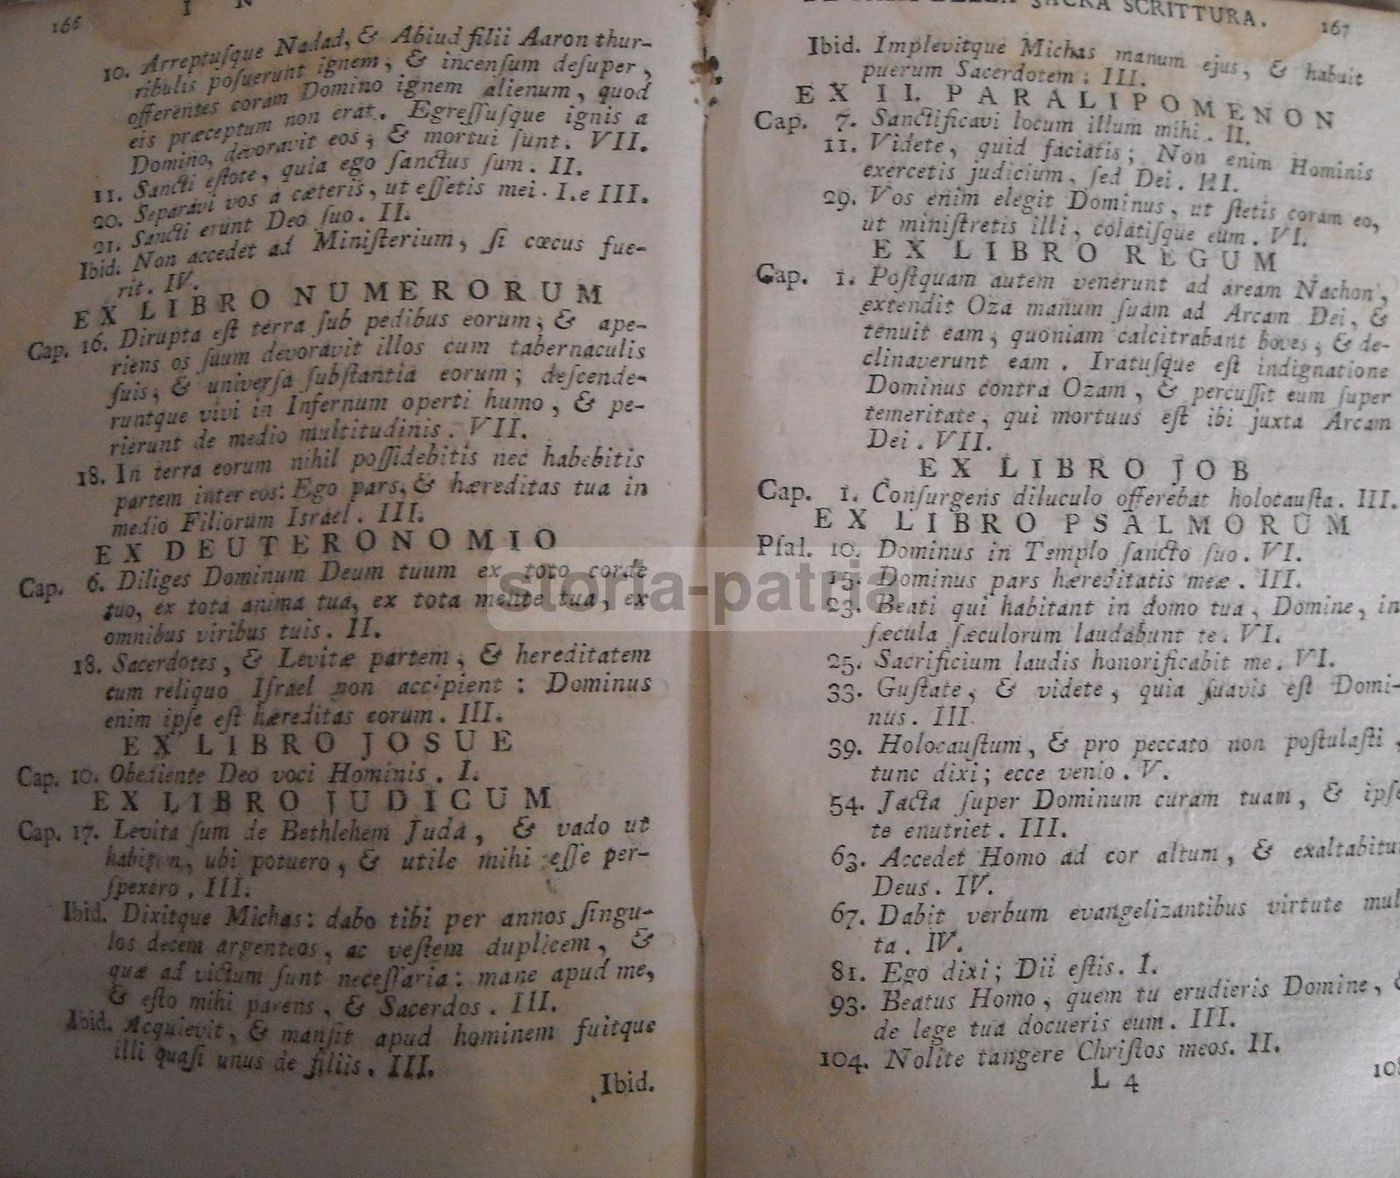 166
I N
10. Arreptuſque Nadad, & Abiud filii Aaron thur-
ribulis poſuerunt ignem, & incenſum deſuper,
offerentes coram Domino ignem alienum, quod
eis præceptum non erat. Egreſſuſque ignis a
Domino, devoravit eos; & mortui ſunt. VII.
11. Sancti eſtote, quia ego ſanctus ſum. II.
20. Separavi vos á cæteris, ut eſſetis mei. I. e III.
21. Sancti erunt Deo ſuo. II.
Ibid. Non accedet ad Miniſterium, ſi cæcus fue-
rit. IV.
EX LIBRO NUMERORUM
Cap. 16. Dirupta eſt terra ſub pedibus eorum; & ape-
riens os ſuum devoravit illos cum tabernaculis
ſuis; & univerſa ſubſtantia eorum; deſcende-
runtque vivi in Infernum operti humo, & pe-
rierunt de medio multitudinis. VII.
18. In terra eorum nihil poſſidebitis nec habebitis
partem inter eos: Ego pars, & hæreditas tua in
medio Filiorum Israel. III.
EX DEUTERONOMIO
Cap. 6. Diliges Dominum Deum tuum ex toto corde
tuo, ex tota anima tua, ex tota mente tua, ex
omnibus viribus tuis. II.
18. Sacerdotes, & Levitæ partem, & hereditatem
cum reliquo Iſrael non accipient: Dominus
enim ipſe eſt hæreditas eorum. III.
EX LIBRO JOSUE
Cap. 10. Obediente Deo voci Hominis. I.
EX LIBRO JUDICUM
Cap. 17. Levita ſum de Bethlehem Judá, & vado ut
habitem, ubi potuero, & utile mihi eſſe per-
ſpexero. III.
Ibid. Dixitque Michas: dabo tibi per annos ſingu-
los decem argenteos, ac veſtem duplicem, &
quæ ad victum ſunt neceſſaria: mane apud me,
& eſto mihi parens, & Sacerdos. III.
Ibid. Acquievit, & manſit apud hominem fuitque
illi quaſi unus de filiis. III.
Ibid.
DELLA SACRA SCRITTURA. 167
Ibid. Implevitque Michas manum ejus, & habuit
puerum Sacerdotem. III.
EX II. PARALIPOMENON
Cap. 7. Sanctificavi locum illum mihi. II.
11. Videte, quid faciatis; Non enim Hominis
exercetis judicium, ſed Dei. III.
29. Vos enim elegit Dominus, ut ſtetis coram eo,
ut miniſtretis illi, colatiſque eum. VI.
EX LIBRO REGUM
Cap. 1. Poſtquam autem venerunt ad aream Nachon,
extendit Oza manum ſuam ad Arcam Dei, &
tenuit eam, quoniam calcitrabant boves, & de-
clinaverunt eam. Iratuſque eſt indignatione
Dominus contra Ozam, & percuſſit eum ſuper
temeritate, qui mortuus eſt ibi juxta Arcam
Dei. VII.
EX LIBRO JOB
Cap. 1. Conſurgens diluculo offerebat holocauſta. III.
EX LIBRO PSALMORUM
Pſal. 10. Dominus in Templo ſancto ſuo. VI.
15. Dominus pars hæreditatis meæ. III.
23. Beati qui habitant in domo tua, Domine, in
ſæcula ſæculorum laudabunt te. VI.
25. Sacrificium laudis honorificabit me. VI.
33. Guſtate, & videte, quia ſuavis eſt Domi-
nus. III
39. Holocauſtum, & pro peccato non poſtulaſti,
tunc dixi; ecce venio. V.
54. Jacta ſuper Dominum curam tuam, & ipſe
te enutriet. III.
63. Accedet Homo ad cor altum, & exaltabitu
Deus. IV.
67. Dabit verbum evangelizantibus virtute mul
ta. IV.
81. Ego dixi; Dii eſtis. I.
93. Beatus Homo, quem tu erudieris Domine,
de lege tua docueris eum. III.
104. Nolite tangere Chriſtos meos. II.
L 4
storia-patria